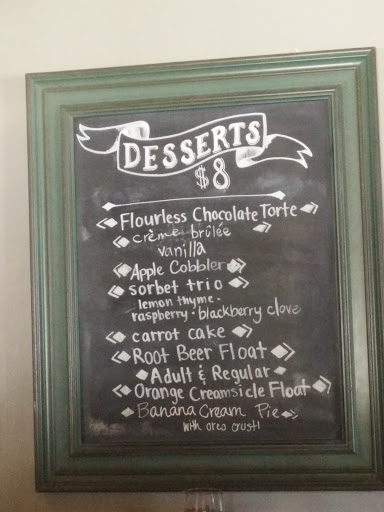 DESSERTS
$8
Flourless Chocolate Torte
crème brûlée
vanilla
Apple Cobbler
sorbet trio
lemon thyme -
raspberry - blackberry clove
carrot cake
Root Beer Float
Adult & Regular
Orange Creamsicle Float
Banana Cream Pie
with oreo crust!